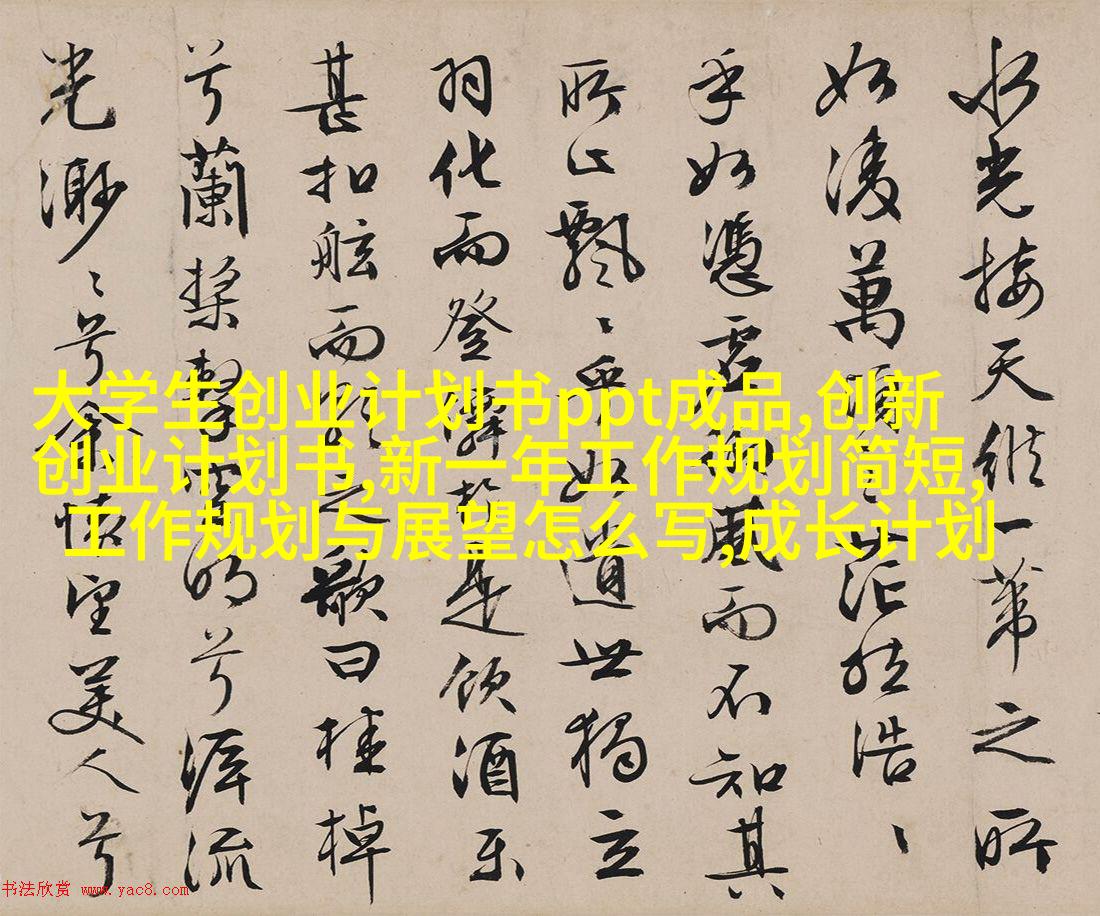 水光接天縱一葦之所
如凌萬頃之茫然浩ヽ
乎如憑虛御風而不知其
所止飄ヽ乎如遺世獨立
羽化而登僊於是飲酒樂
甚扣舷而歌之歌曰桂棹
兮蘭槳擊空明兮泝流
光渺ヽ兮余懷望美人兮
大学生创业计划书ppt成品,创新
创业计划书,新一年工作规划简短,
工作规划与展望怎么写,成长计划
书法欣赏 www.yac8.com